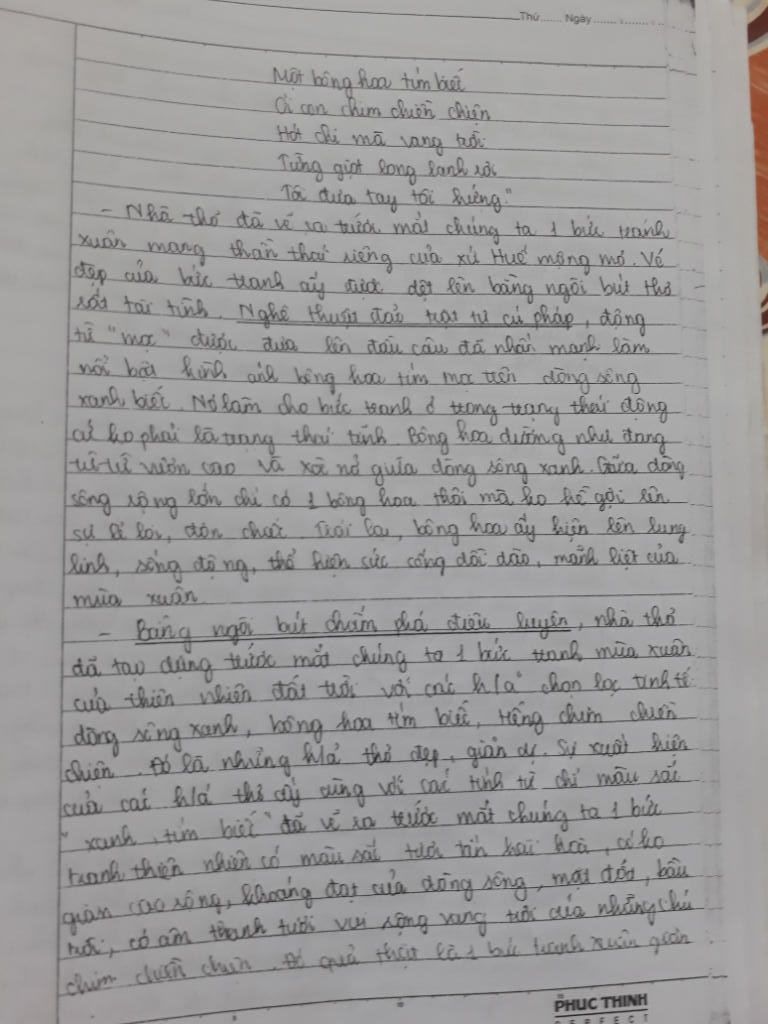 Thứ...... Ngày...............
Một bông hoa tím biếc
Ơi con chim chiền chiện
Hót chi mà vang trời
Từng giọt long lanh rơi
Tôi đưa tay tôi hứng."
- Nhà thơ đã vẽ ra trước mắt chúng ta 1 bức tranh
xuân mang thần thái riêng của xứ Huế mộng mơ. Vẻ
đẹp của bức tranh ấy được dệt lên bằng ngòi bút thơ
rất tài tình. Nghệ thuật đảo trật tự cú pháp, động
từ "mọc" được đưa lên đầu câu đã nhấn mạnh làm
nổi bật hình ảnh bông hoa tím mọc trên dòng sông
xanh biếc. Nó làm cho bức tranh ở trong trạng thái động
cứ ko phải là trạng thái tĩnh. Bông hoa dường như đang
từ từ vươn cao và xoè nở giữa dòng sông xanh. Giữa dòng
sông rộng lớn chỉ có 1 bông hoa thôi mà ko hề gợi lên
sự lẻ loi, đơn chiếc. Trái lại, bông hoa ấy hiện lên lung
linh, sống động, thể hiện sức sống dồi dào, mãnh liệt của
mùa xuân
- Bằng ngòi bút chấm phá điêu luyện, nhà thơ
đã tạo dựng trước mắt chúng ta 1 bức tranh mùa xuân
của thiên nhiên đất trời với các h/ả chọn lọc tinh tế:
dòng sông xanh, bông hoa tím biếc, tiếng chim chiền
chiện. Đó là những h/ả thơ đẹp, giản dị. Sự xuất hiện
của các h/ả thơ ấy cùng với các tính từ chỉ màu sắc
"xanh, tím biếc" đã vẽ ra trước mắt chúng ta 1 bức
tranh thiên nhiên có màu sắc tươi tắn hài hoà, có ko
gian cao rộng, khoáng đạt của dòng sông, mặt đất, bầu
trời, có âm thanh tươi vui rộng vang trời của những chú
chim chiền chiện. Đó quả thật là 1 bức tranh xuân giản
PHUC THINH
PERFECT